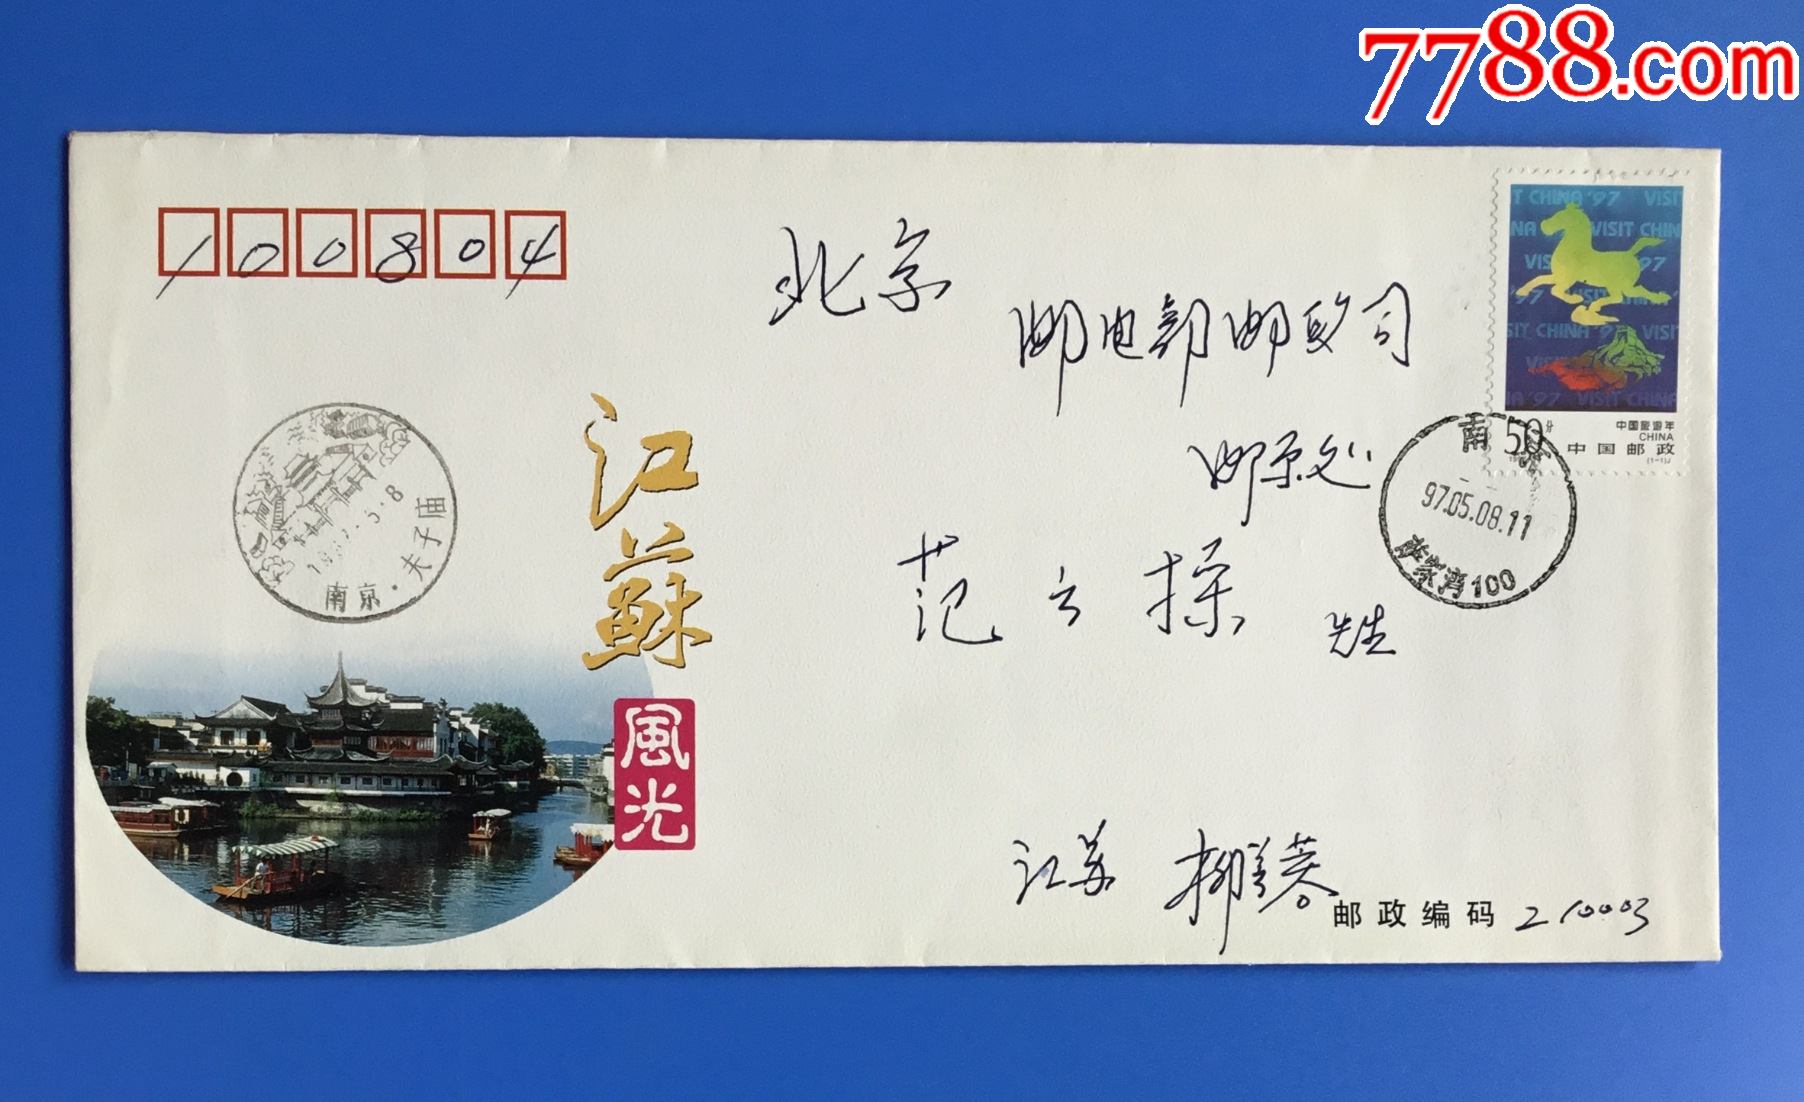 7788.com
100804
北京
邮电部邮政司
邮票处
范云操 先生
VISIT CHINA '97
50分
中国旅游年
CHINA
中国邮政
(1-1)J
南京
97.05.08.11
100
南京·夫子庙
江蘇
風光
江苏
邮政编码 210003